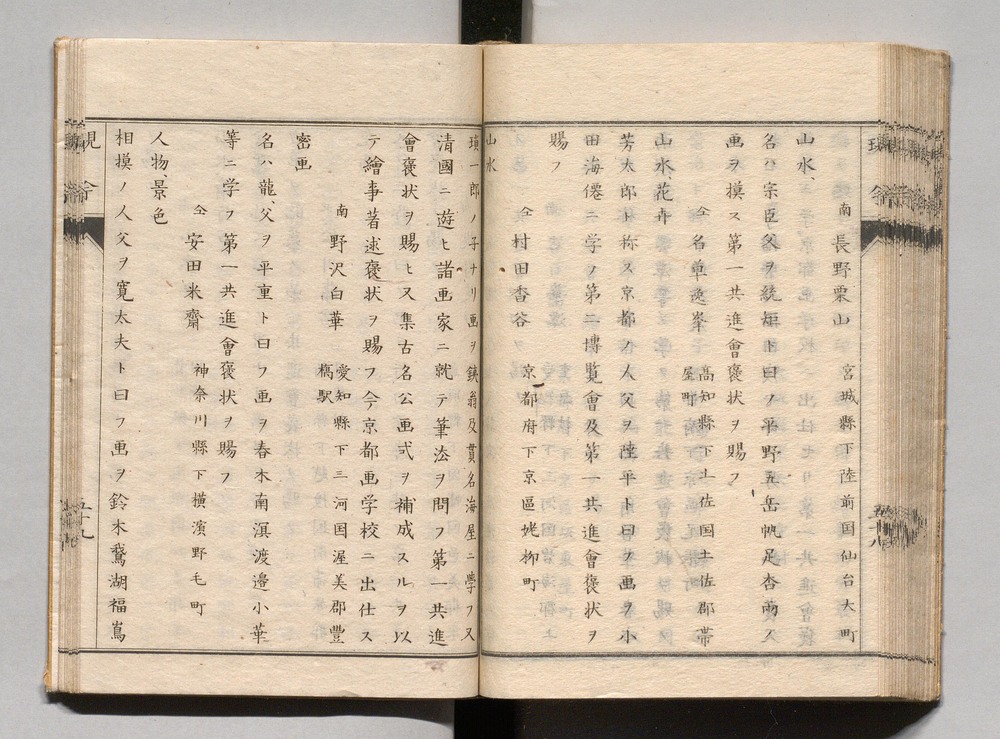 南 長野栗山 宮城縣下陸前国仙台大町
山水、
名ハ宗臣父ヲ統矩ト曰フ平野五岳帆足杏雨ノ
画ヲ摸ス第一共進會褒状ヲ賜フ
仝 名草逸峯 高知縣下土佐国土佐郡帯
屋町
山水、花卉
芳太郎ト称ス京都ノ人父ヲ陸平ト曰フ画ヲ小
田海僊ニ学フ第二博覧會及第一共進會褒状ヲ
賜フ
仝 村田香谷 京都府下京區姥柳町
山水
瑛一郎ノ子ナリ画ヲ鉄翁及貫名海屋ニ學フ又
清國ニ遊ヒ諸画家ニ就テ筆法ヲ問フ第一共進
會褒状ヲ賜ヒ又集古名公画式ヲ補成スルヲ以
テ繪事著述褒状ヲ賜フ今京都画学校ニ出仕ス
南 野沢白華 愛知縣下三河国渥美郡豐
橋駅
密画
名ハ龍、父ヲ平重ト曰フ画ヲ春木南溟渡邉小華
等ニ学フ第一共進會褒状ヲ賜フ
仝 安田米齋 神奈川縣下横濱野毛町
人物、景色
相摸ノ人父ヲ寛太夫ト曰フ画ヲ鈴木鵞湖福嶌
五十九